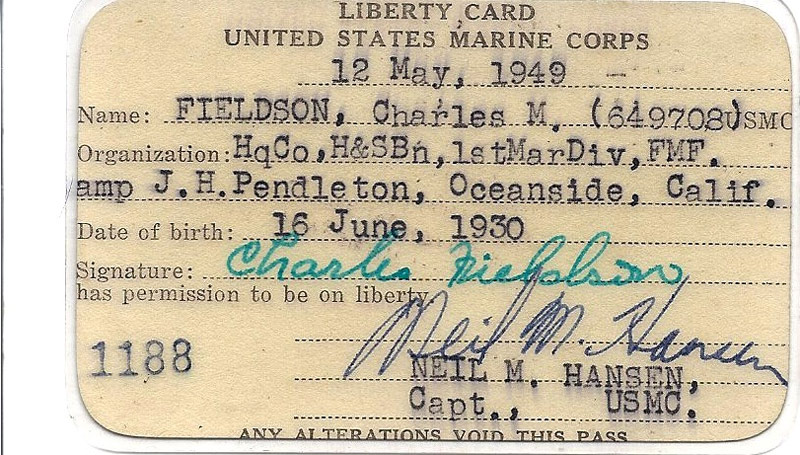 LIBERTY CARD
UNITED STATES MARINE CORPS
12 May, 1949 –
Name: FIELDSON, Charles M. (649708)USMC
Organization: HqCo,H&SBn,1stMarDiv,FMF.
amp J.H.Pendleton, Oceanside, Calif.
Date of birth: 16 June, 1930
Signature: Charles Fieldson
has permission to be on liberty.
Neil M. Hansen
1188
NEIL M. HANSEN,
Capt., USMC.
ANY ALTERATIONS VOID THIS PASS